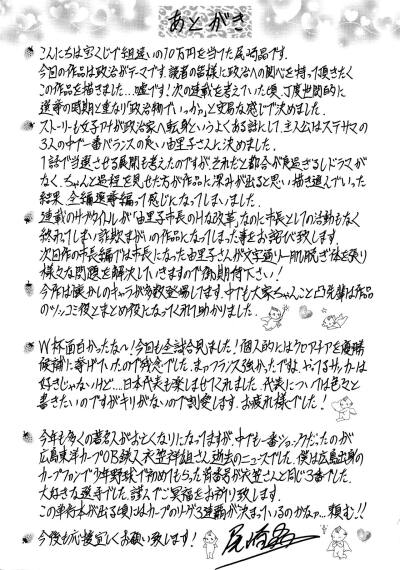 あとがき
こんにちは宝くじで組違いの10万円を当てた尾崎晶です。
今回の作品は政治がテーマです。読者の皆様に政治への関心を持って頂きたく
この作品を描きました…嘘です!次の連載を考えていた頃、丁度世間的に
選挙の時期と重なり「政治物でいっか。」と安易な感じで決めました。
ストーリーも女子アナが政治家へ転身というよくある話にして、主人公はステサマの
3人の中で一番バランスの良い由里子さんに決めました。
1話で当選させる展開も考えたのですがそれだと都合が良過ぎるしドラマが
なく、ちゃんと過程を見せた方が作品に深みが出ると思い描き進んでいった
結果、全編選挙編って感じになってしまいました。
連載のサブタイトルが「由里子市長のHな改革」なのに市長としての活動もなく
終わってしまい詐欺まがいの作品になってしまった事をお詫び致します。
次回作の市長編では市長になった由里子さんが文字通り一肌脱ぎ体を張り
様々な問題を解決していきますので御期待下さい!
今作は懐かしのキャラが多数登場してます。中でも大家ちゃんこと凸先輩は作品
のツッコミ役とまとめ役になってくれて助かりました。
W杯面白かったな〜!今回も全試合見ました!個人的にはクロアチアを優勝
候補に挙げていたので残念でした。まぁフランス強かったですね。やってるサッカーは
好きじゃないけど…日本代表も楽しませてくれました。代表については色々と
書きたいのですがキリがないので割愛します。お疲れ様でした!
今年も多くの著名人がお亡くなりになってますが、中でも一番ショックだったのが
広島東洋カープOB鉄人衣笠祥雄さん逝去のニュースでした。僕は広島出身の
カープファンで少年野球で初めてもらった背番号が衣笠さんと同じ3番でした。
大好きな選手でした。謹んでご冥福をお祈り致します。
この単行本が出る頃にはカープのリーグ3連覇が決まっているのかなァ…頼む!!
今後も応援宜しくお願い致します!
尾崎晶